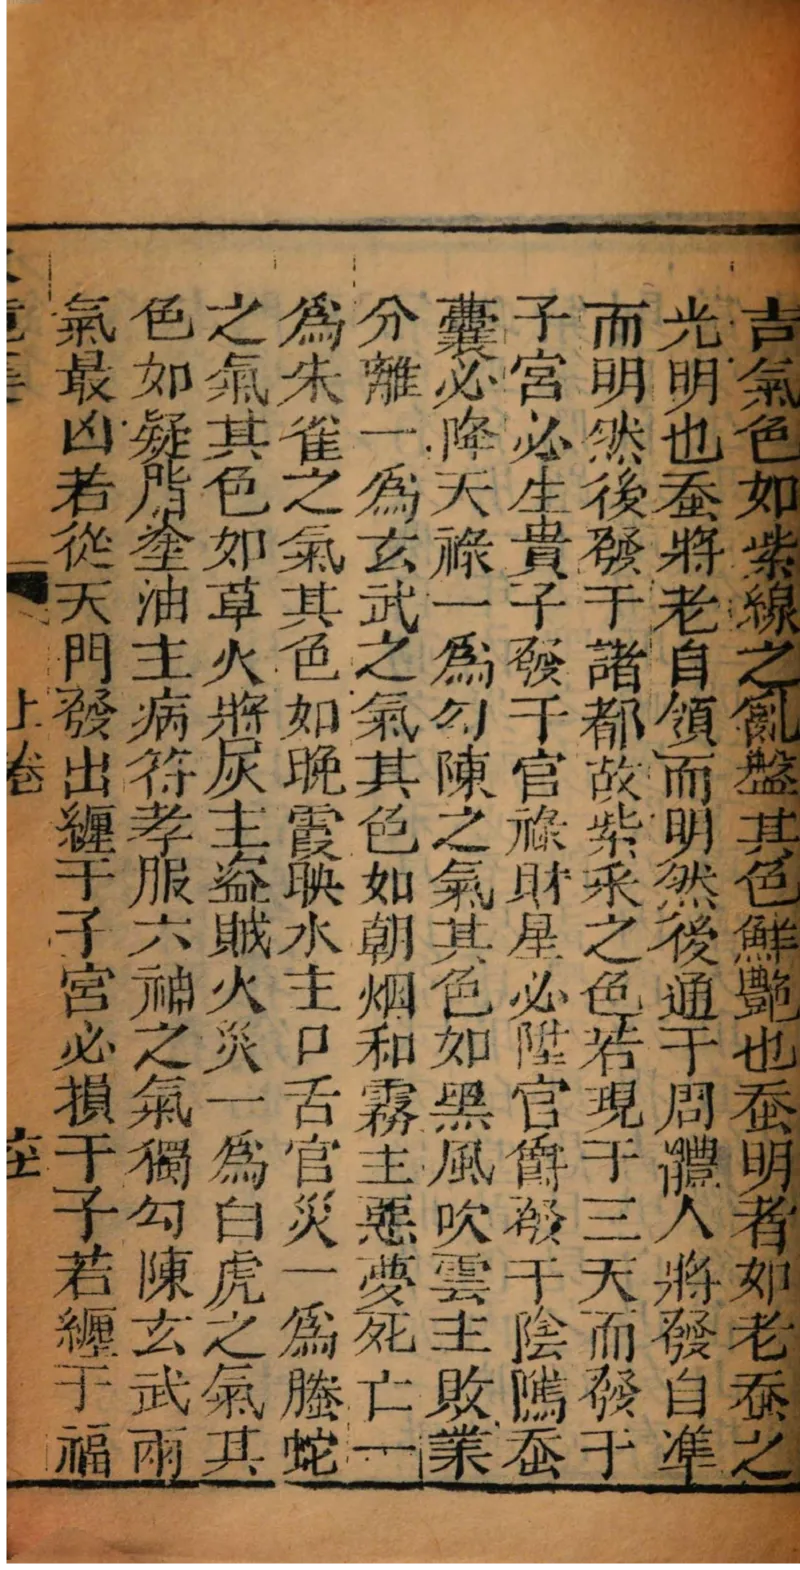 吉氣色如紫線之亂盤其色鮮艷也蚕明者如老蚕之
光明也蚕將老自領而明然後通于周體人將發自凖
而明然後發于諸都故紫采之色若現于三天而發于
子宮必生貴子發于官祿財星必陞官爵發于陰隲蚕
囊必降天祿一爲勾陳之氣其色如黑風吹雲主敗業
分離一爲玄武之氣其色如朝烟和霧主惡夢死亡一
爲朱雀之氣其色如晚霞映水主口舌官災一爲螣蛇
之氣其色如草火將灰主盗賊火災一爲白虎之氣其
色如凝脂塗油主病符孝服六神之氣獨勾陳玄武兩
氣最凶若從天門發出纏于子宮必損于子若纏于福
上卷